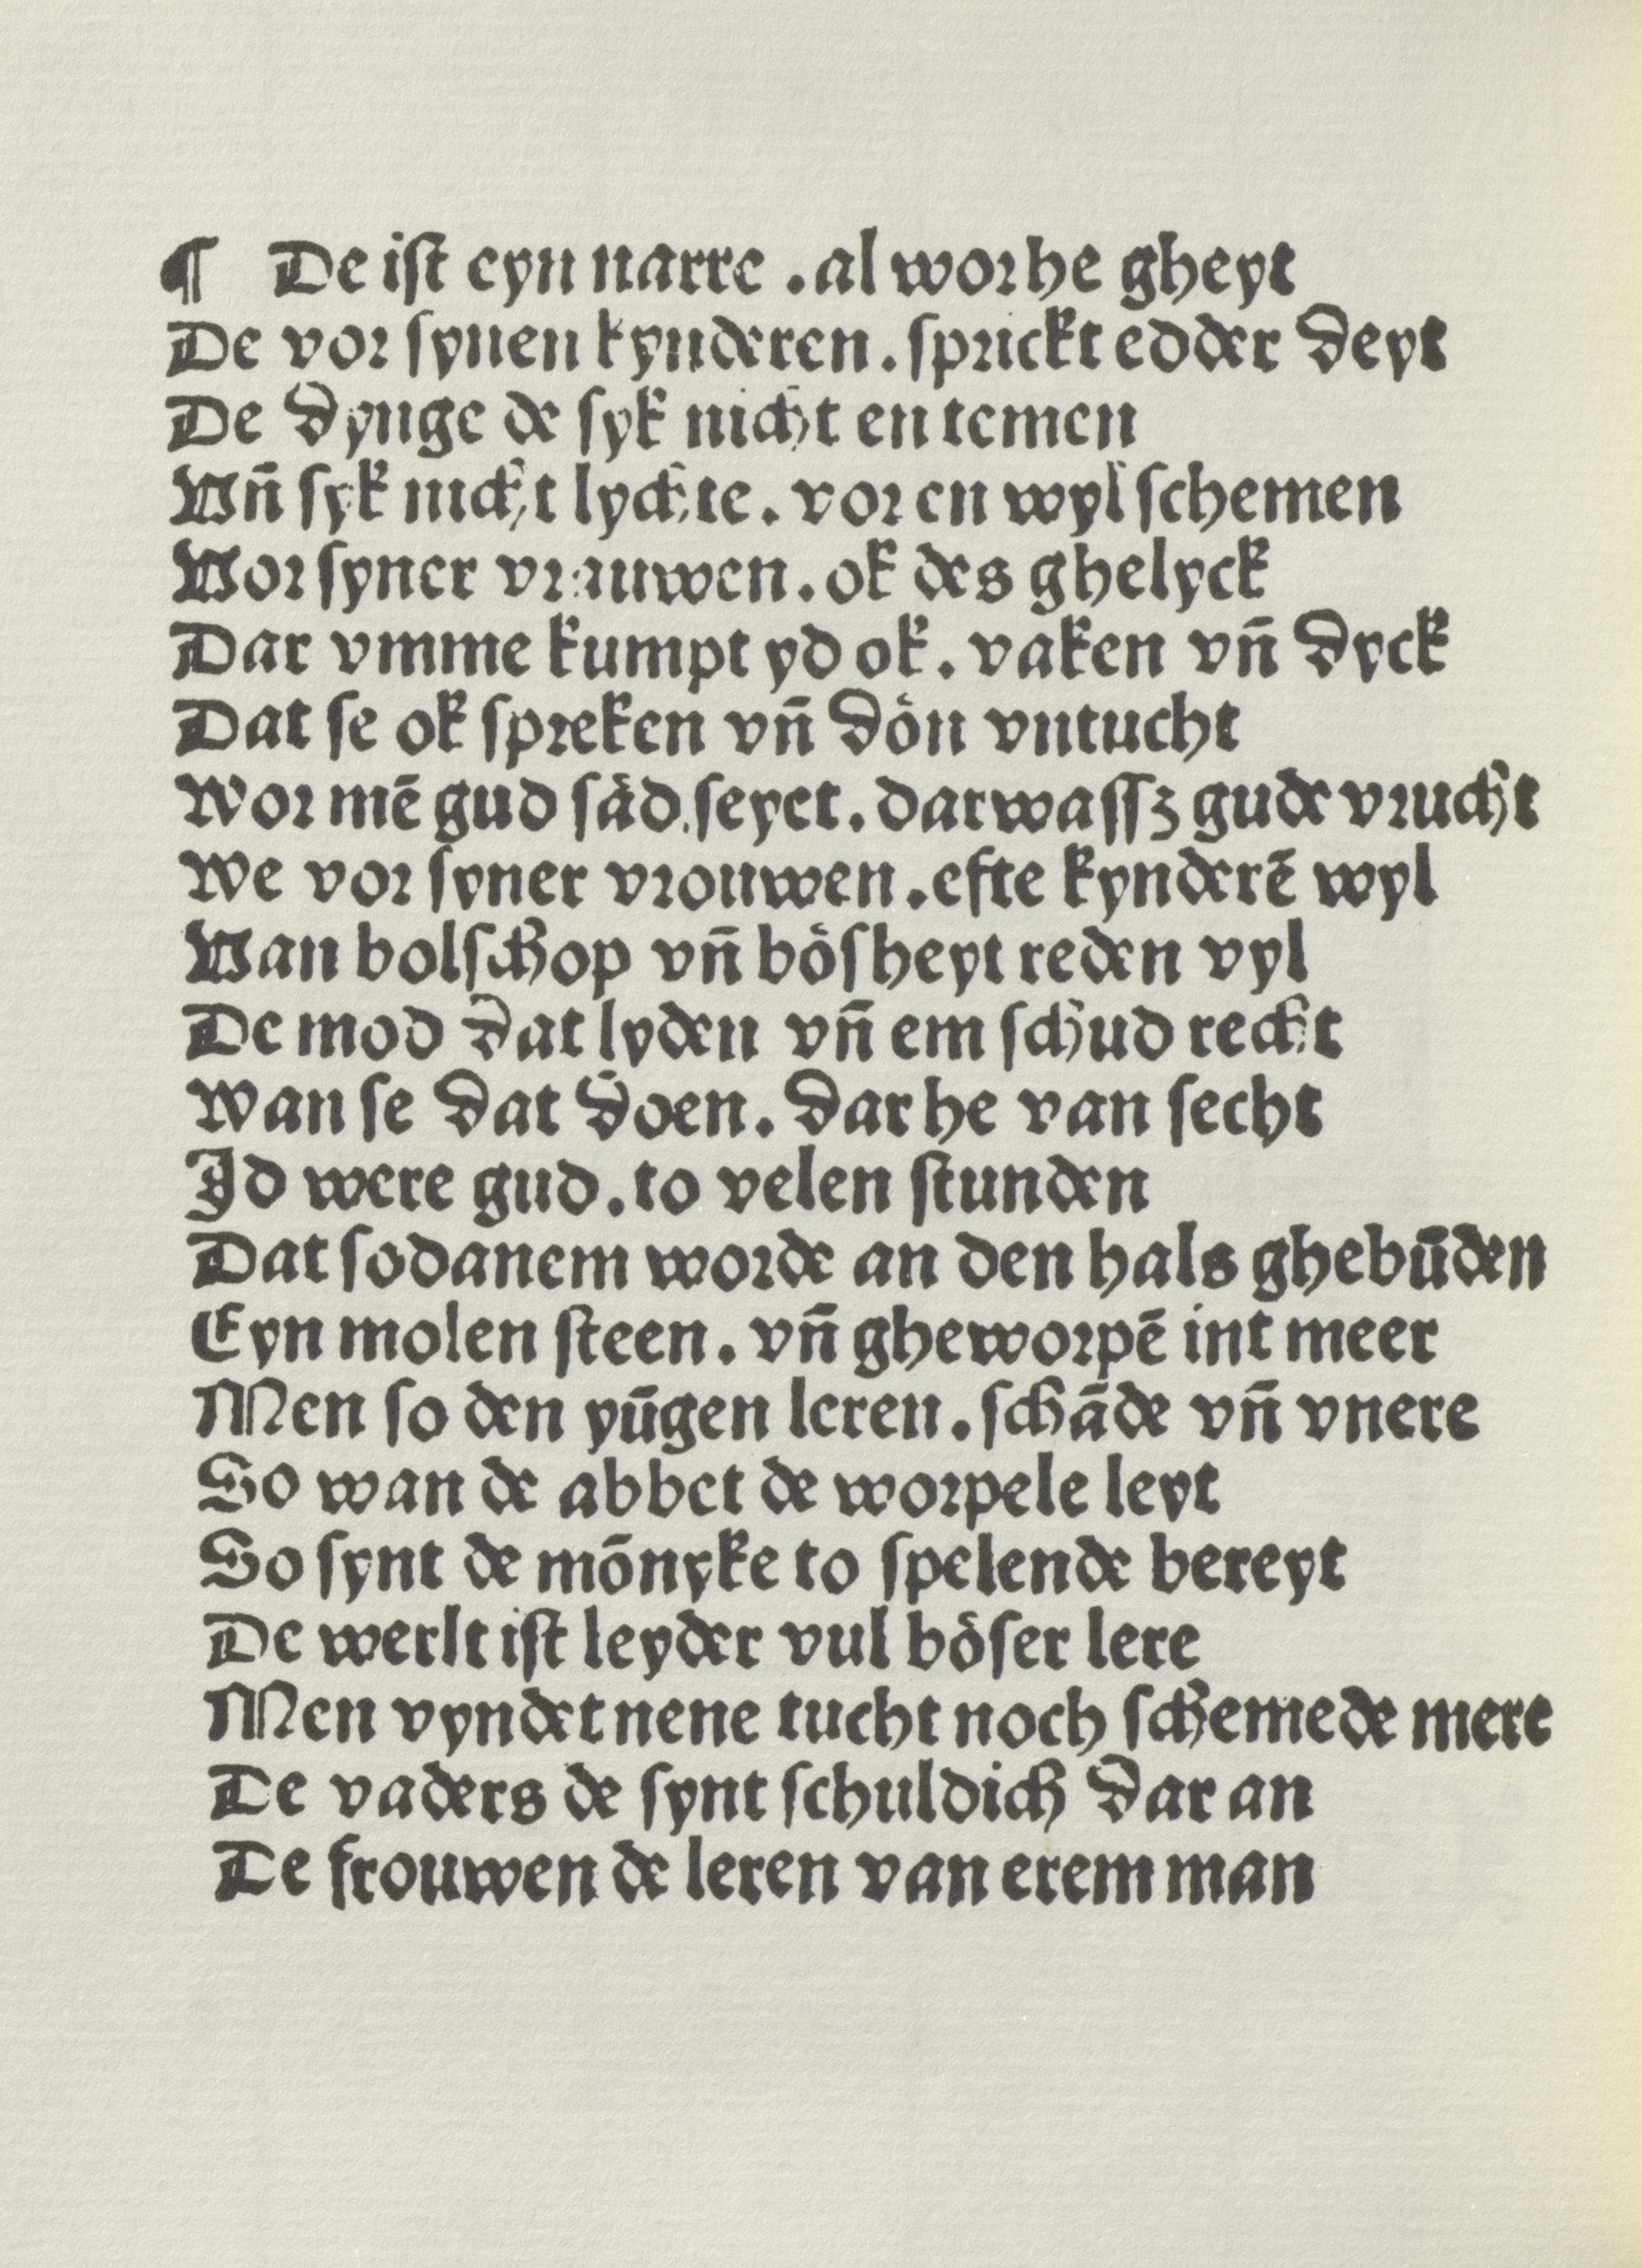 ¶ De iſt eyn narre . al wor he gheyt
De vor ſynen kynderen . ſprickt edder deyt
De dynge de ſyk nicht en temen
Vn̄ ſyk nicht lychte . vor en wyl ſchemen
Vor ſyner vrauwen . ok des ghelyck
Dar vmme kumpt yd ok . vaken vn̄ dyck
Dat ſe ok ſpreken vn̄ dön vntucht
Wor mē gud ſäd ſeyet . dar waſſʒ gude vrucht
We vor ſyner vrouwen . efte kynderē wyl
Van bolſchop vn̄ böſheyt reden vyl
De mod dat lyden vn̄ em ſchud recht
Wan ſe dat doen . dar he van ſecht
Id were gud . to velen ſtunden
Dat ſodanem worde an den hals ghebūden
Eyn molen ſteen . vn̄ gheworpē int meer
Men ſo den yūgen leren . ſchāde vn̄ vnere
So wan de abbet de worpele leyt
So ſynt de mōnyke to ſpelende bereyt
De werlt iſt leyder vul böſer lere
Men vyndet nene tucht noch ſchemede mere
De vaders de ſynt ſchuldich dar an
De frouwen de leren van erem man